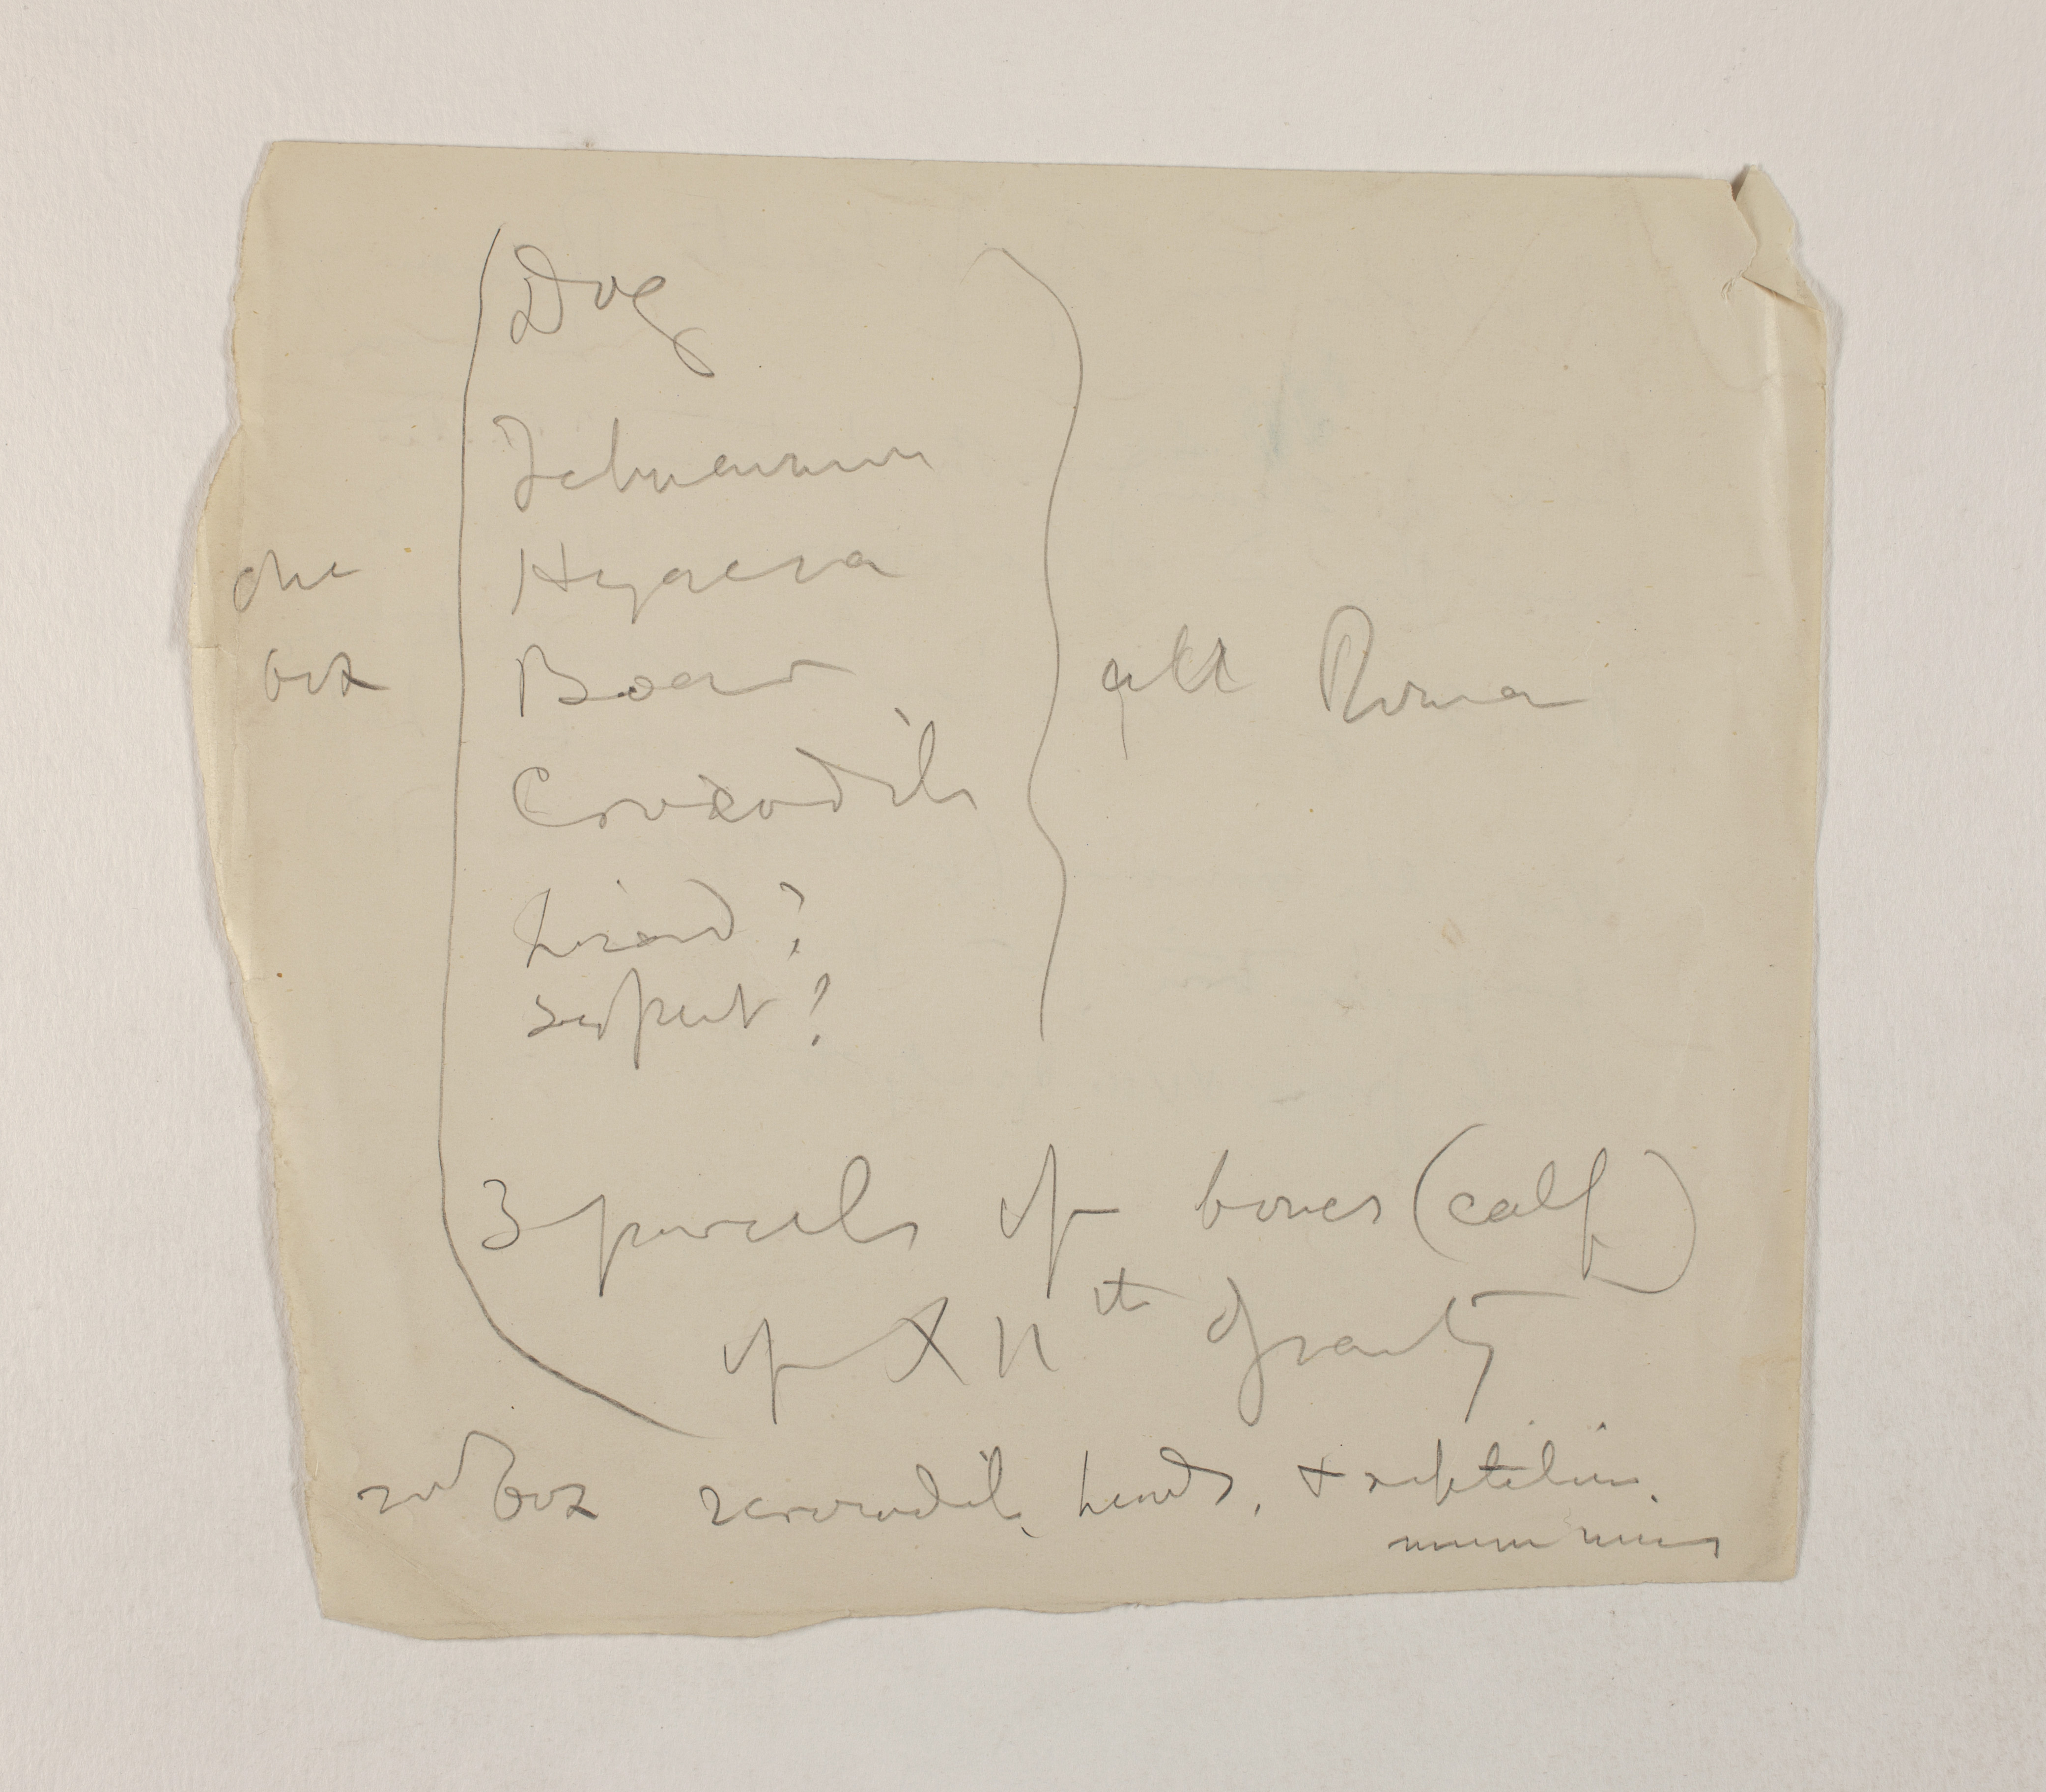 Dog
Ichneumon
Hyaena
one
box
Boar
all Roman
Crocodile
Lizard ?
serpent ?
3 parcels of bones (calf)
of XIIth dynasty
box
crocodile heads, + reptilian
mummies